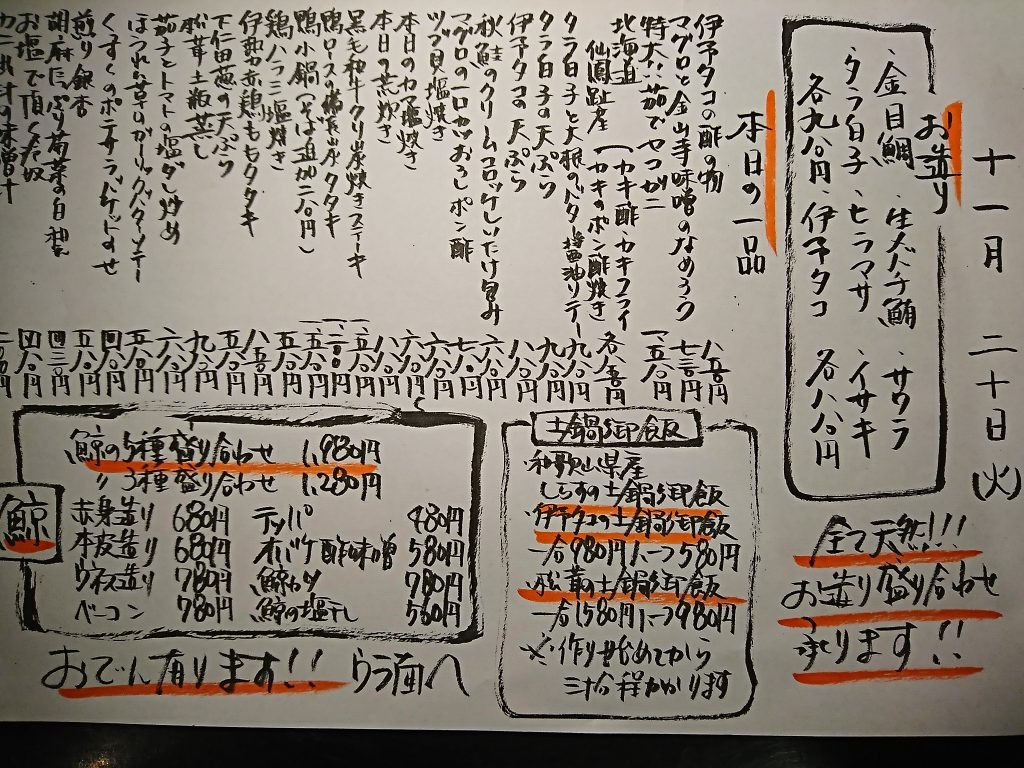 十一月 二十日(火)
お造り
・金目鯛 ・生本マグロ ・サワラ
・タラ白子 ・ヒラマサ ・イサキ
各九八〇円・伊予タコ 各八八〇円
全て天然!!!
お造り盛り合わせ
承ります!!
本日の一品
伊予タコの酢の物 八八〇円
マグロと金山寺味噌のなめろう 七三〇円
特大!!茹でセコガニ 一、五八〇円
北海道 仙鳳趾産 (カキ酢・カキフライ カキのポン酢焼き 各八五〇円
タラ白子と大根のバター醤油ソテー 九八〇円
タラ白子の天ぷら 九八〇円
伊予タコの天ぷら 八八〇円
秋鮭のクリームコロッケしいたけ包み 六八〇円
マグロの一口カツおろしポン酢 七八〇円
ツブ貝塩焼き 六八〇円
本日のカマ塩焼き
本日の煮炊き
黒毛和牛クリ炭焼きステーキ
鴨ロースの藁炭タタキ
鴨小鍋(そば追加二八〇円)
鶏ハラミ塩焼き 五八〇円
伊勢赤鶏ももタタキ 八五〇円
下仁田葱の天ぷら 五八〇円
松茸土瓶蒸し 九八〇円
茄子とトマトの塩ダレ炒め 六八〇円
ほうれん草のガーリックバターソテー 五八〇円
くずくのポテサラバゲットのせ 四八〇円
煎り銀杏 五八〇円
胡麻たっぷり菊菜の白和え 四三〇円
お塩で頂く冷奴 四八〇円
カニ出汁の味噌汁
土鍋御飯
和歌山県産
しらすの土鍋御飯
伊予タコの土鍋御飯
一合980円1/2っ580円
松茸の土鍋御飯
一合1,580円1/2っ980円
※作り始めてから
三十分程かかります
鯨
鯨の5種盛り合わせ 1,980円
〃 3種盛り合わせ 1,280円
赤身造り 680円 テッパ 480円
本皮造り 680円 オバケ酢味噌 580円
ウネス造り 780円 鯨カツ 780円
ベーコン 780円 鯨の塩干し 560円
おでん有ります!! ウラ面へ